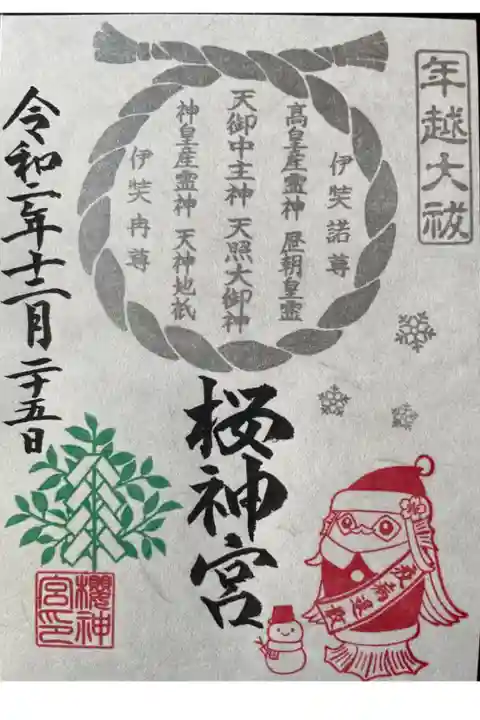 年越大祓
伊弉諾尊
高皇産霊神 歴朝皇霊
天御中主神 天照大御神
神皇産霊神 天神地祇
伊弉冉尊
桜神宮
令和二年十二月二十五日
疫病退散
櫻神
宮印